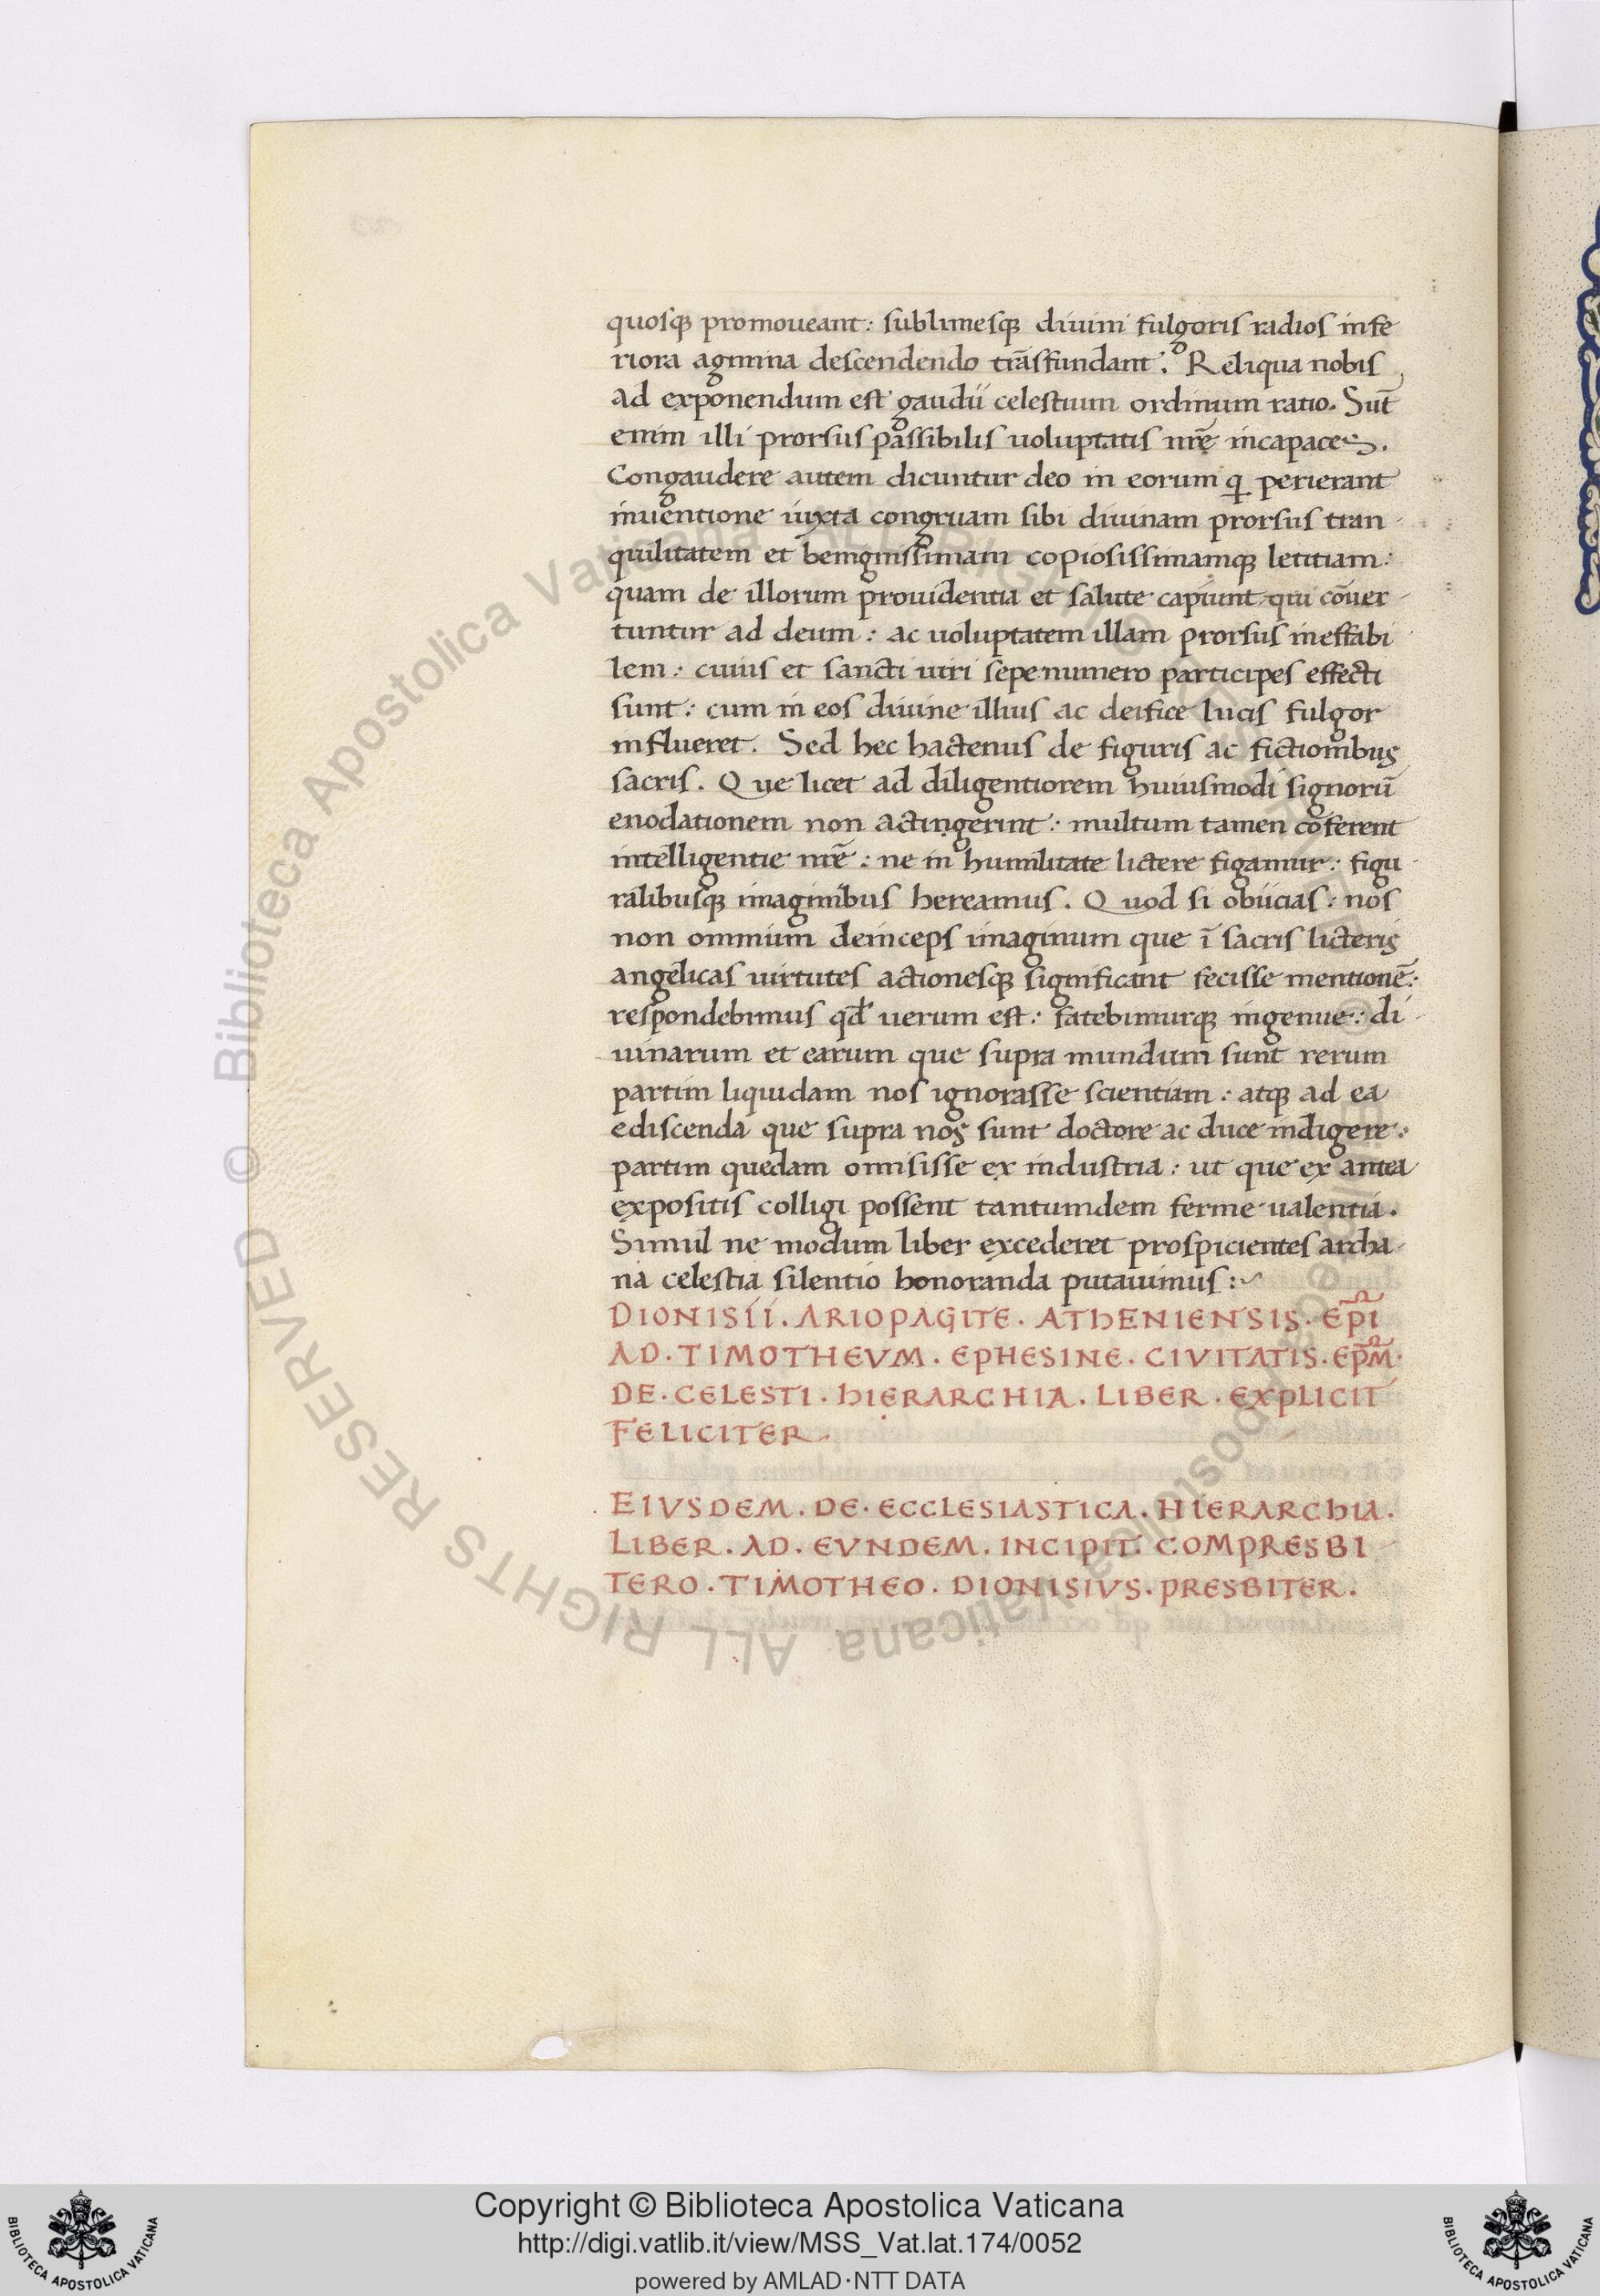 quosq̃ promoueant: sublimesq̃ diuini fulgoris radios infe
riora agmina descendendo trãsfundant. Reliqua nobis
ad exponendum est gaudii celestium ordinum ratio. Sūt
enim illi prorsus passibilis uoluptatis nrẽ incapaces.
Congaudere autem dicuntur deo in eorum q̃ perierant
inuentione iuxta congruam sibi diuinam prorsus tran
quilitatem et benignissimam copiosissimamq̃ letitiam:
quam de illorum prouidentia et salute capiunt qui cõuer
tuntur ad deum: ac uoluptatem illam prorsus ineffabi
lem: cuius et sancti uiri sepenumero participes effecti
sunt: cum in eos diuine illius ac deifice lucis fulgor
influeret. Sed hec hactenus de figuris ac fictionibus
sacris. Que licet ad diligentiorem huiusmodi signorũ
enodationem non actingerint: multum tamen cõferent
intelligentie nrẽ: ne in humilitate lictere figamur: figu
ralibusq̃ imaginibus hereamus. Quod si obiicias: nos
non omnium deinceps imaginum que ĩ sacris licteris
angelicas uirtutes actionesq̃ significant fecisse mentionẽ:
respondebimus qđ uerum est: fatebimurq̃ ingenue: di
uinarum et earum que supra mundum sunt rerum
partim liquidam nos ignorasse scientiam: atq̃ ad ea
ediscenda que supra nos sunt doctore ac duce indigere:
partim quedam omisisse ex industria: ut que ex antea
expositis colligi possent tantumdem ferme ualentia.
Simul ne modum liber excederet prospicientes archa
na celestia silentio honoranda putauimus:
DIONISII. ARIOPAGITE. ATHENIENSIS. EP̃I
AD. TIMOTHEVM. EPHESINE. CIVITATIS. EP̃M.
DE. CELESTI. HIERARCHIA. LIBER. EXPLICIT
FELICITER.
EIVSDEM. DE. ECCLESIASTICA. HIERARCHIA.
LIBER. AD. EVNDEM. INCIPIT. COMPRESBI
TERO. TIMOTHEO. DIONISIVS. PRESBITER.
© Biblioteca Apostolica Vaticana ALL RIGHTS RESERVED
Copyright © Biblioteca Apostolica Vaticana
http://digi.vatlib.it/view/MSS_Vat.lat.174/0052
powered by AMLAD·NTT DATA
BIBLIOTECA APOSTOLICA VATICANA
BIBLIOTECA APOSTOLICA VATICANA